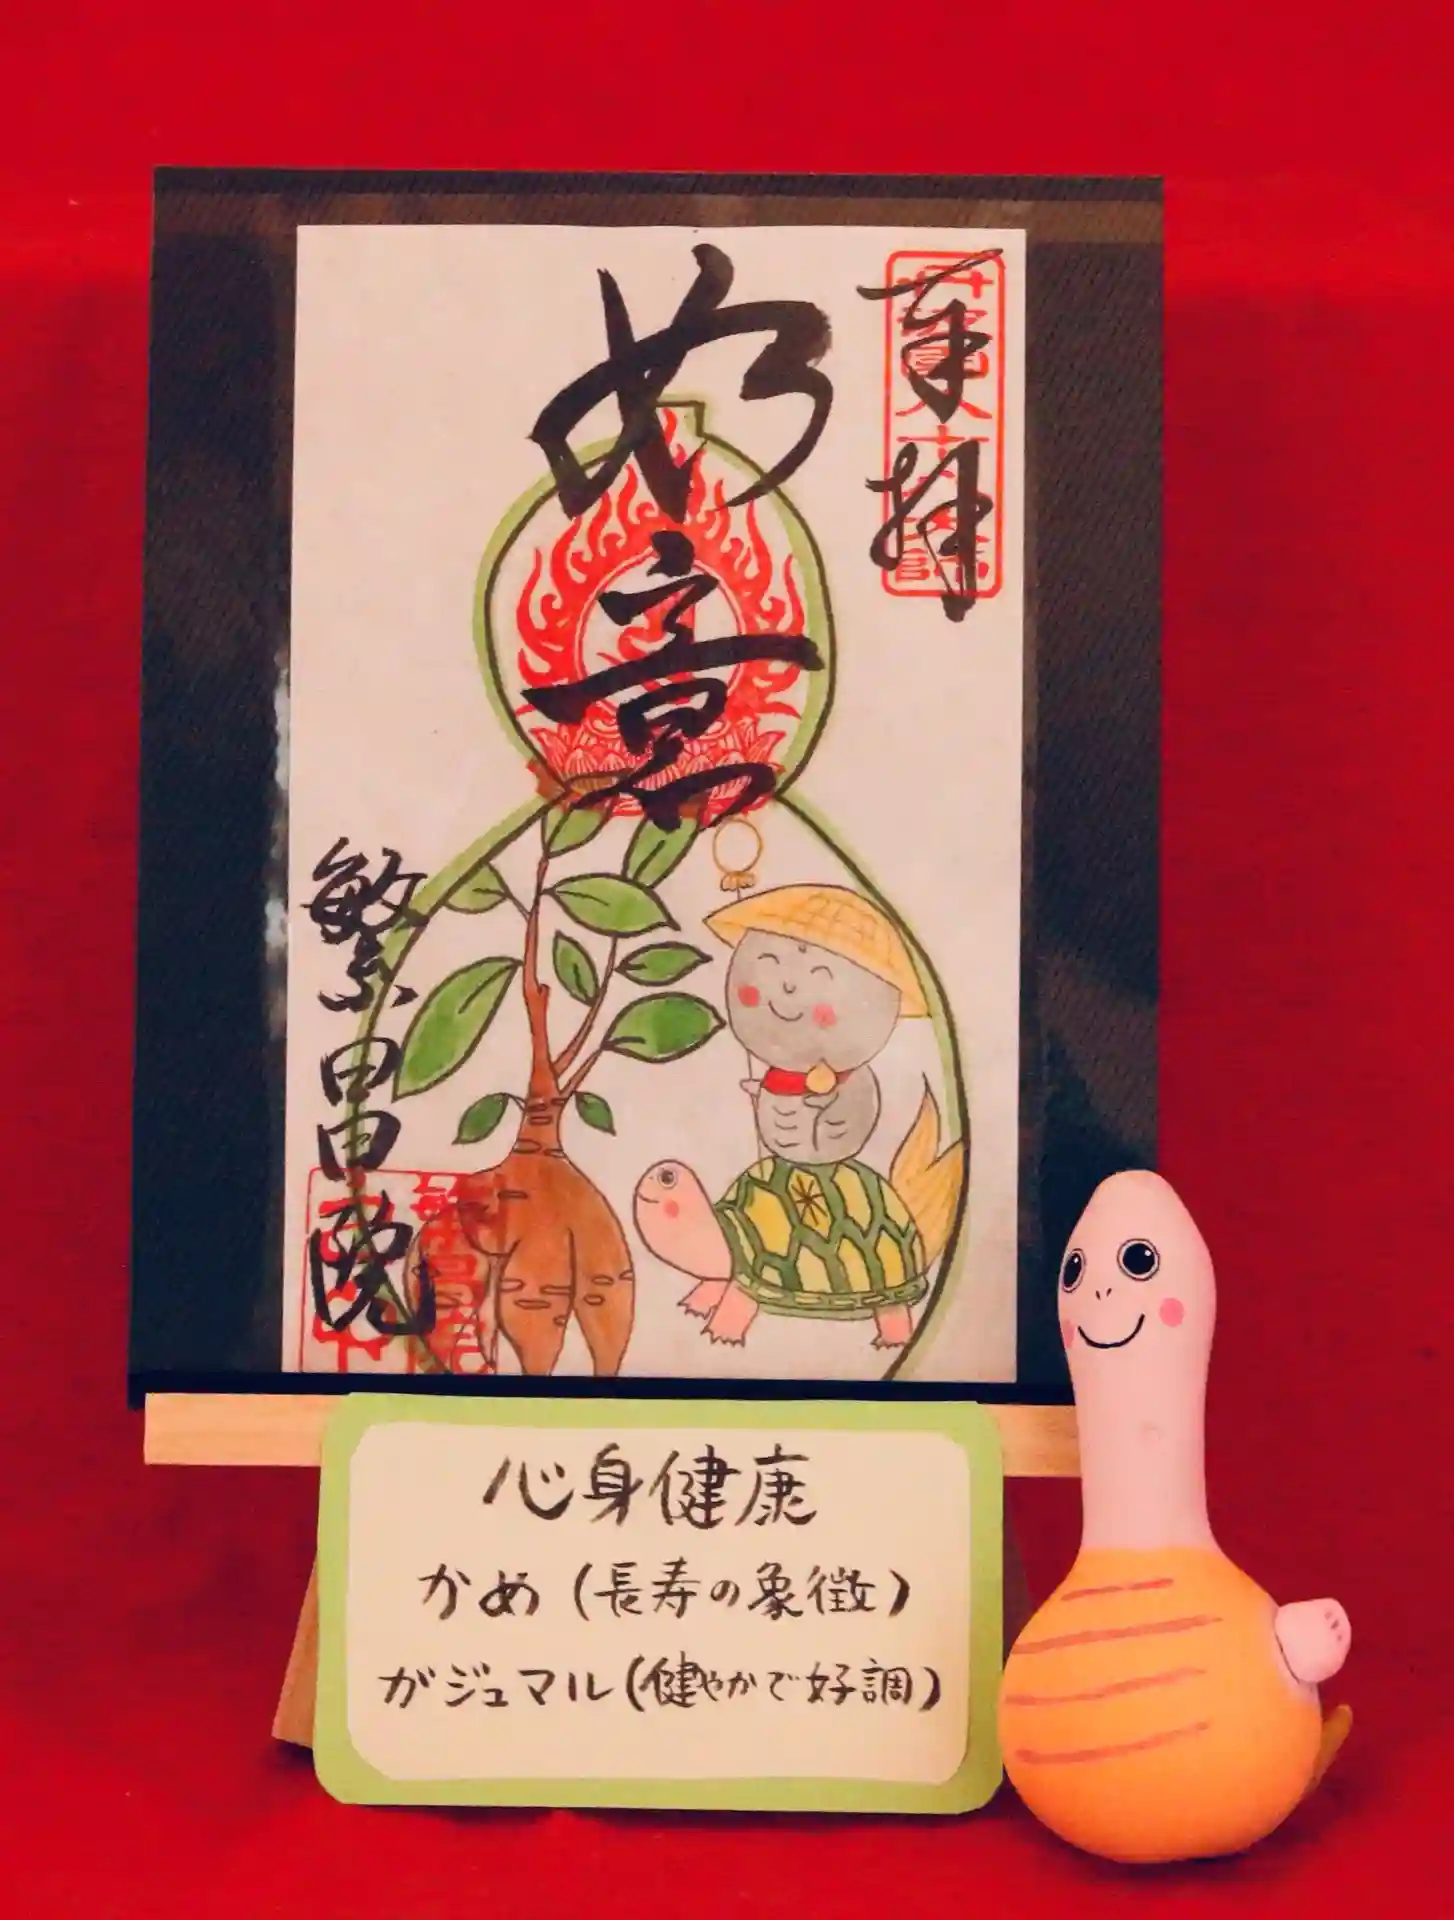 奉拝
如意
繁昌院
心身健康
かめ(長寿の象徴)
ガジュマル(健やかで好調)